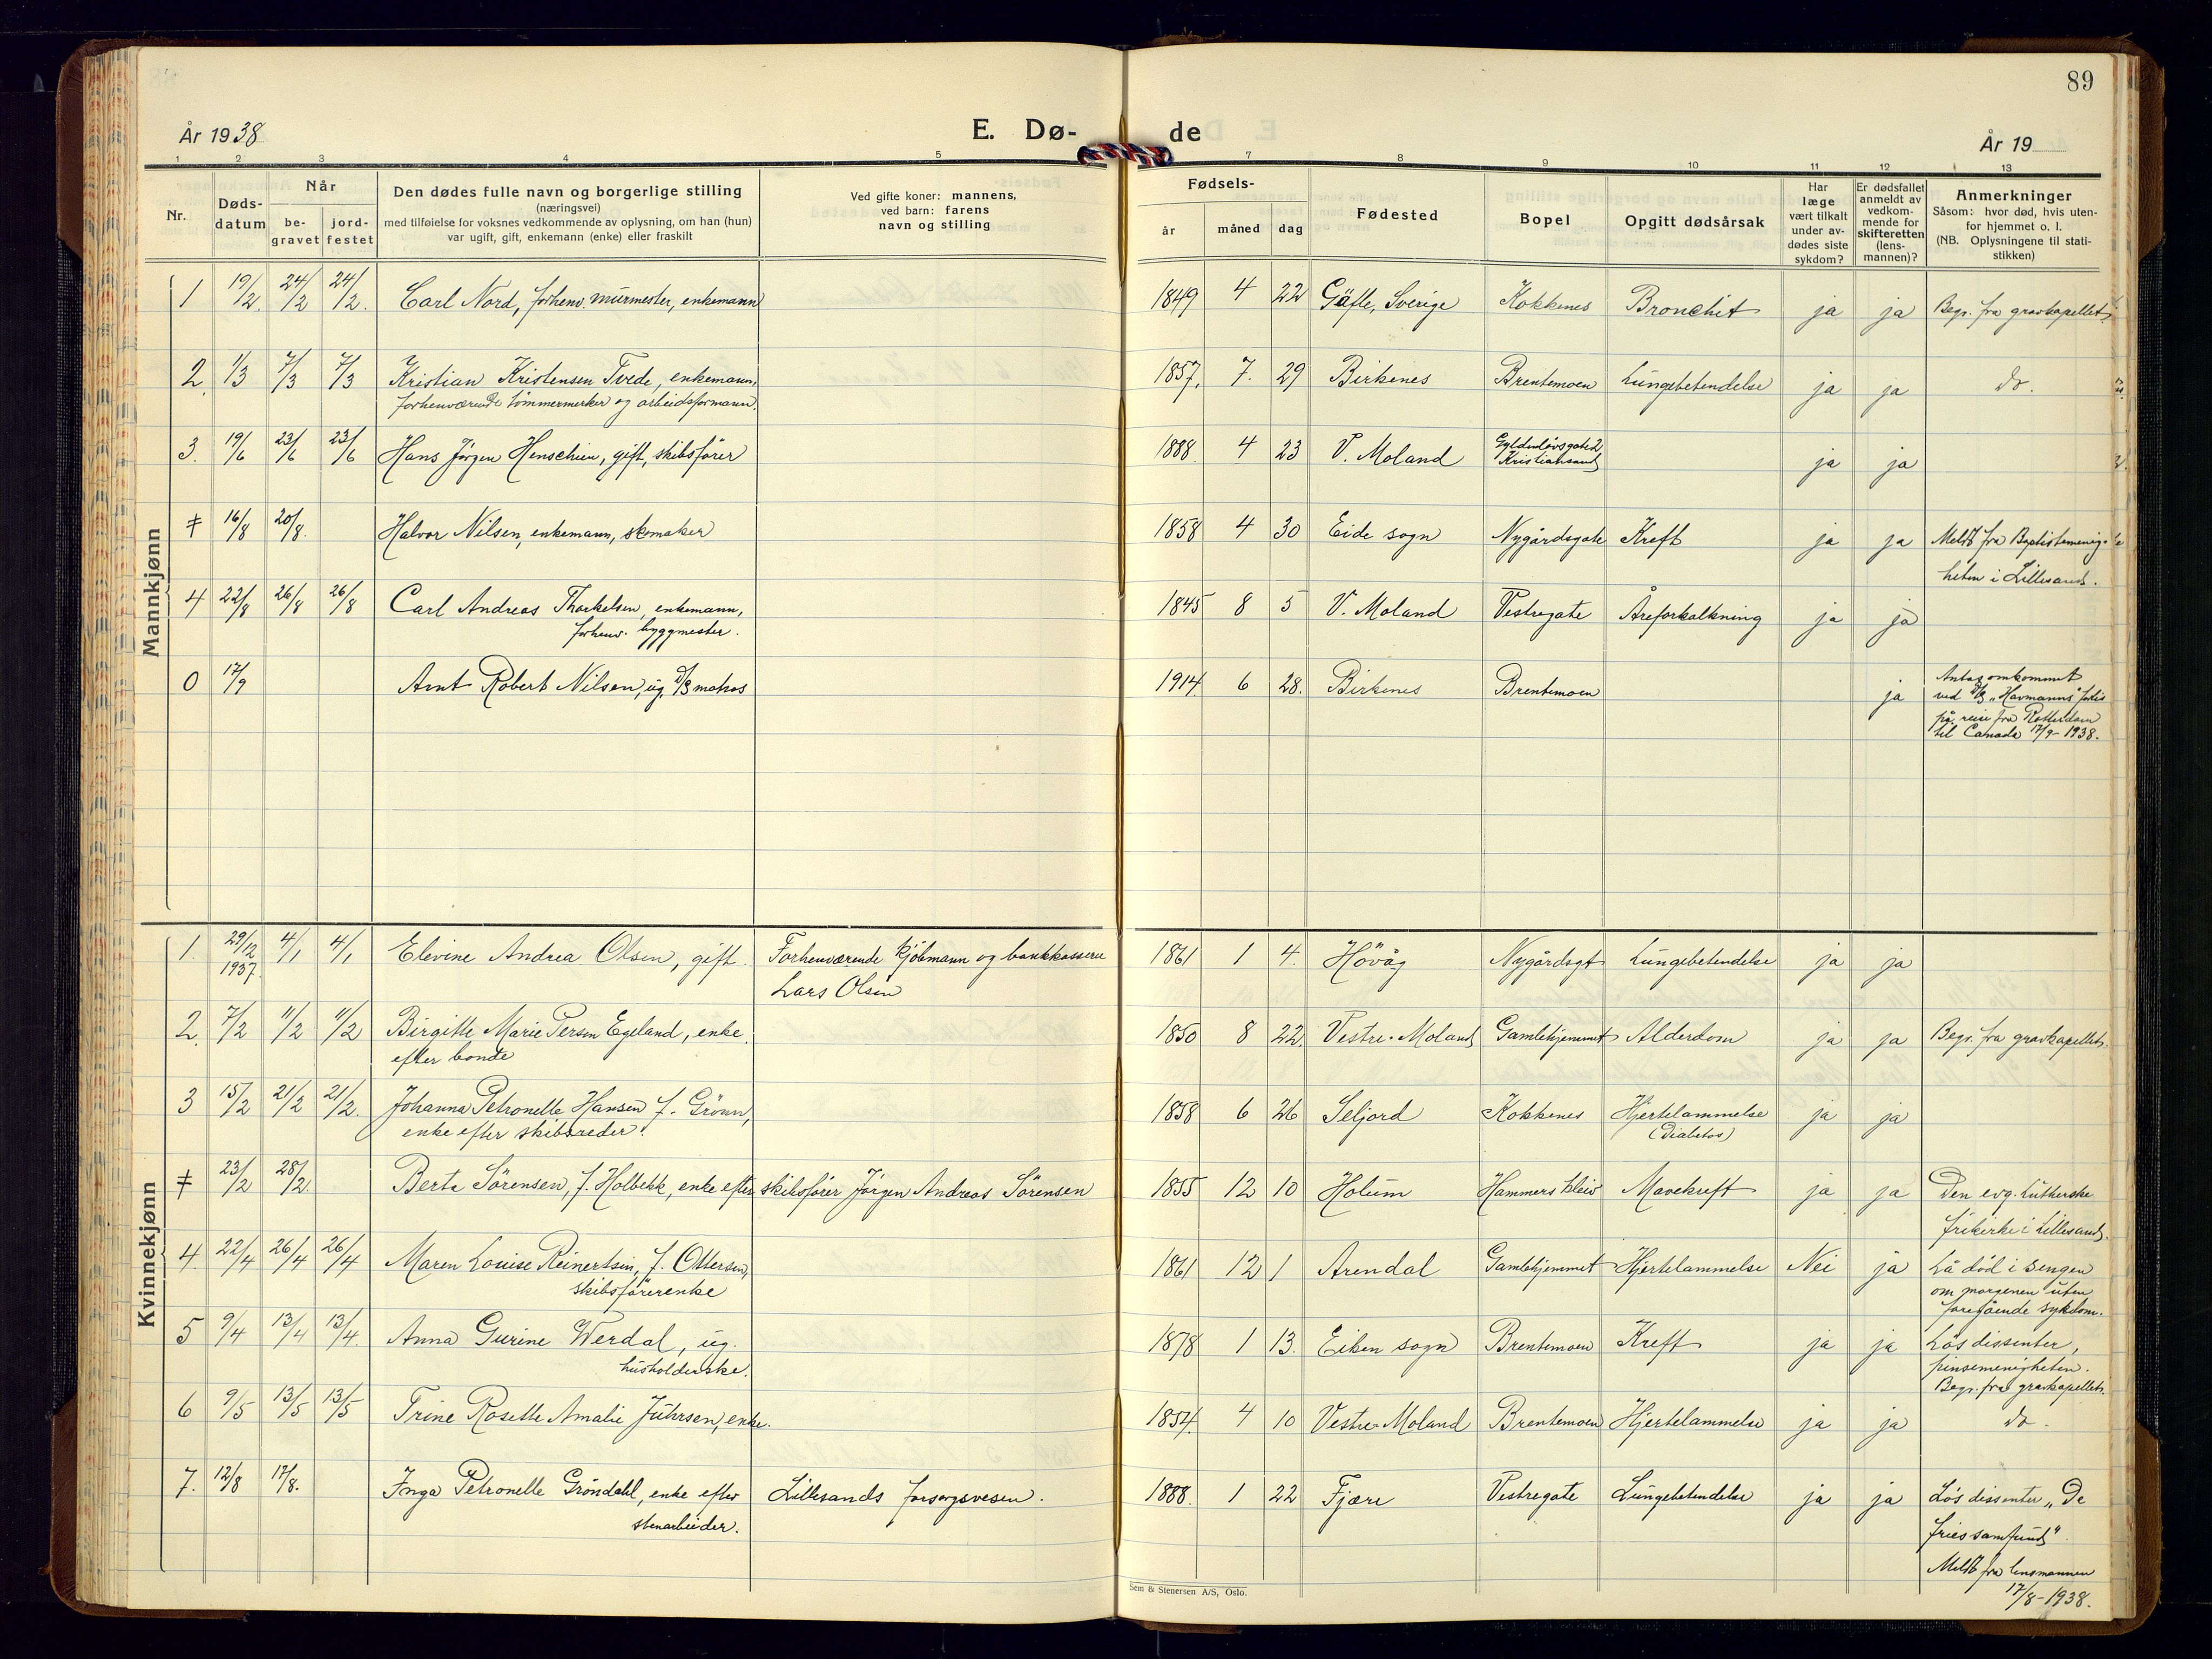 89
År 1938
E. Dø-
de
År 19
1 2 3 4 5 7 8 9 10 11 12 13
Nr.
Døds-
datum
Når
be-
gravet
jord-
festet
Den dødes fulle navn og borgerlige stilling
(næringsvei)
med tilføielse for voksnes vedkommende av oplysning, om han (hun)
var ugift, gift, enkemann (enke) eller fraskilt
Ved gifte koner: mannens,
ved barn: farens
navn og stilling
Fødsels-
år
måned
dag
Fødested
Bopel
Opgitt dødsårsak
Har
læge
vært tilkalt
under av-
dødes siste
sykdom?
Er dødsfallet
anmeldt av
vedkom-
mende for
skifteretten
(lens-
mannen)?
Anmerkninger
Såsom: hvor død, hvis uten-
for hjemmet o. l.
(NB. Oplysningene til stati-
stikken)
Mannkjønn
1 19/2. 24/2 24/2. Carl Nord, forhenv. murmester, enkemann 1849 4 22 Gäfle, Sverige Kokkenes Bronchit ja ja Begr. fra gravkapellet.
2. 1/3 7/3 7/3 Kristian Kristensen Tvede, enkemann, 1857. 7. 29 Birkenes Brentemoen Lungebetendelse ja ja do.
forhenværende tømmermerker og arbeidsformann.
3. 19/6 23/6 23/6 Hans Jørgen Henschien, gift, skibsfører 1888. 4 23 V. Moland Kristiansand ja ja
‡ 16/8 20/8. Halvor Nilsen, enkemann, skomaker 1858 4 30 Eide sogn Nygårdsgate Kreft ja ja Meldt fra Baptistmenig-
heten i Lillesand.
4 22/8 26/8 26/8 Carl Andreas Thorkelsen, enkemann, 1845 8 5 V. Moland Vestregate Åreforkalkning ja ja
forhenv. byggmester.
0 17/9 Arnt Robert Nilsen, ug. d/s matros 1914. 6 28. Birkenes Brentemoen ja Antas omkommet
ved d/s "Havmanns" forlis
på reise fra Rotterdam
til Canada 17/9-1938.
Kvinnekjønn
1. 29/12 1937. 4/1 4/1 Elevine Andrea Olsen, gift. Forhenværende kjøbmann og bankkasserer 1861 1 4. Høvåg Nygårdsgt Lungebetendelse ja ja
Lars Olsen
2. 7/2 11/2 11/2 Birgitte Marie Persen Egeland, enke 1850 8 22. Vestre-Moland Gamlehjemmet Alderdom ja ja Begr. fra gravkapellet.
efter bonde
3 15/2 21/2 21/2. Johanna Petronelle Hansen f. Grönn, 1858 6 26 Seljord Kokkenes Hjertelammelse ja ja
enke efter skibsreder. (Diabetes)
‡ 23/2 28/2. Berta Sörensen, f. Holbekk, enke efter skibsfører Jörgen Andreas Sörensen 1855 12 10 Holum Hammers kleiv Mavekreft ja ja Den evg. lutherske
frikirke i Lillesand.
4. 22/4 26/4 26/4 Maren Louise Reinertsen, f. Ottersen, 1861 12 1 Arendal Gamlehjemmet Hjertelammelse Nei ja Lå död i sengen
skibsförerenke om morgenen uten
foregående sykdom.
5 9/4 13/4 13/4. Anna Gurine Werdal, ug. 1878 1 13. Eiken sogn Brentemoen Kreft ja ja Lös dissenter,
husholderske. pinsemenigheten.
Begr. fra gravkapellet.
6 9/5 13/5 13/5 Trine Rosette Amalie Juhrsen, enke. 1854. 4 10 Vestre-Moland Brentemoen Hjertelammelse ja ja do.
7. 12/8 17/8. Inga Petronelle Gröndahl, enke efter Lillesands forsorgsvesen. 1888. 1 22 Fjære Vestregate Lungebetendelse ja ja Lös dissenter "De
stenarbeider. fries samfund"
Meldt fra lensmannen
17/8-1938.
Sem & Stenersen A/S, Oslo.